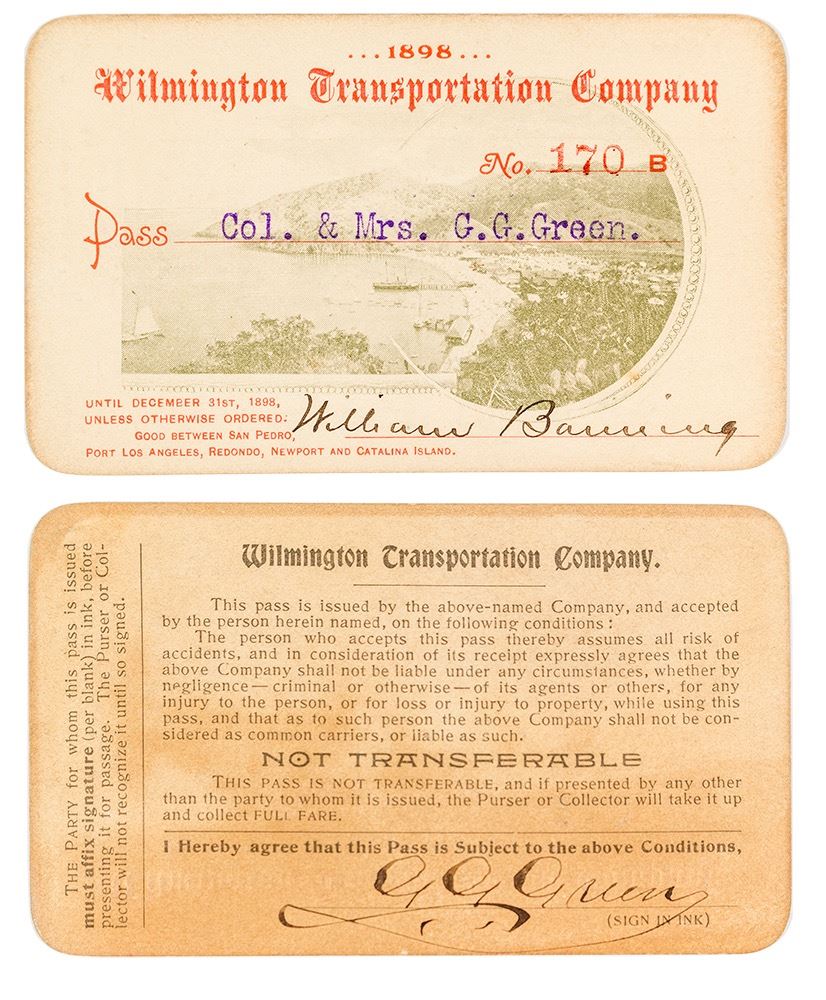 ...1898...
Wilmington Transportation Company
No. 170 B
Pass Col. & Mrs. G.G.Green.
UNTIL DECEMBER 31ST, 1898,
UNLESS OTHERWISE ORDERED.
William Banning
GOOD BETWEEN SAN PEDRO,
PORT LOS ANGELES, REDONDO, NEWPORT AND CATALINA ISLAND.
THE PARTY for whom this pass is issued
must affix signature (per blank) in ink, before
presenting it for passage. The Purser or Col-
lector will not recognize it until so signed.
Wilmington Transportation Company.
This pass is issued by the above-named Company, and accepted
by the person herein named, on the following conditions:
The person who accepts this pass thereby assumes all risk of
accidents, and in consideration of its receipt expressly agrees that the
above Company shall not be liable under any circumstances, whether by
negligence—criminal or otherwise—of its agents or others, for any
injury to the person, or for loss or injury to property, while using this
pass, and that as to such person the above Company shall not be con-
sidered as common carriers, or liable as such.
NOT TRANSFERABLE
THIS PASS IS NOT TRANSFERABLE, and if presented by any other
than the party to whom it is issued, the Purser or Collector will take it up
and collect FULL FARE.
I Hereby agree that this Pass is Subject to the above Conditions,
G G Green
(SIGN IN INK)